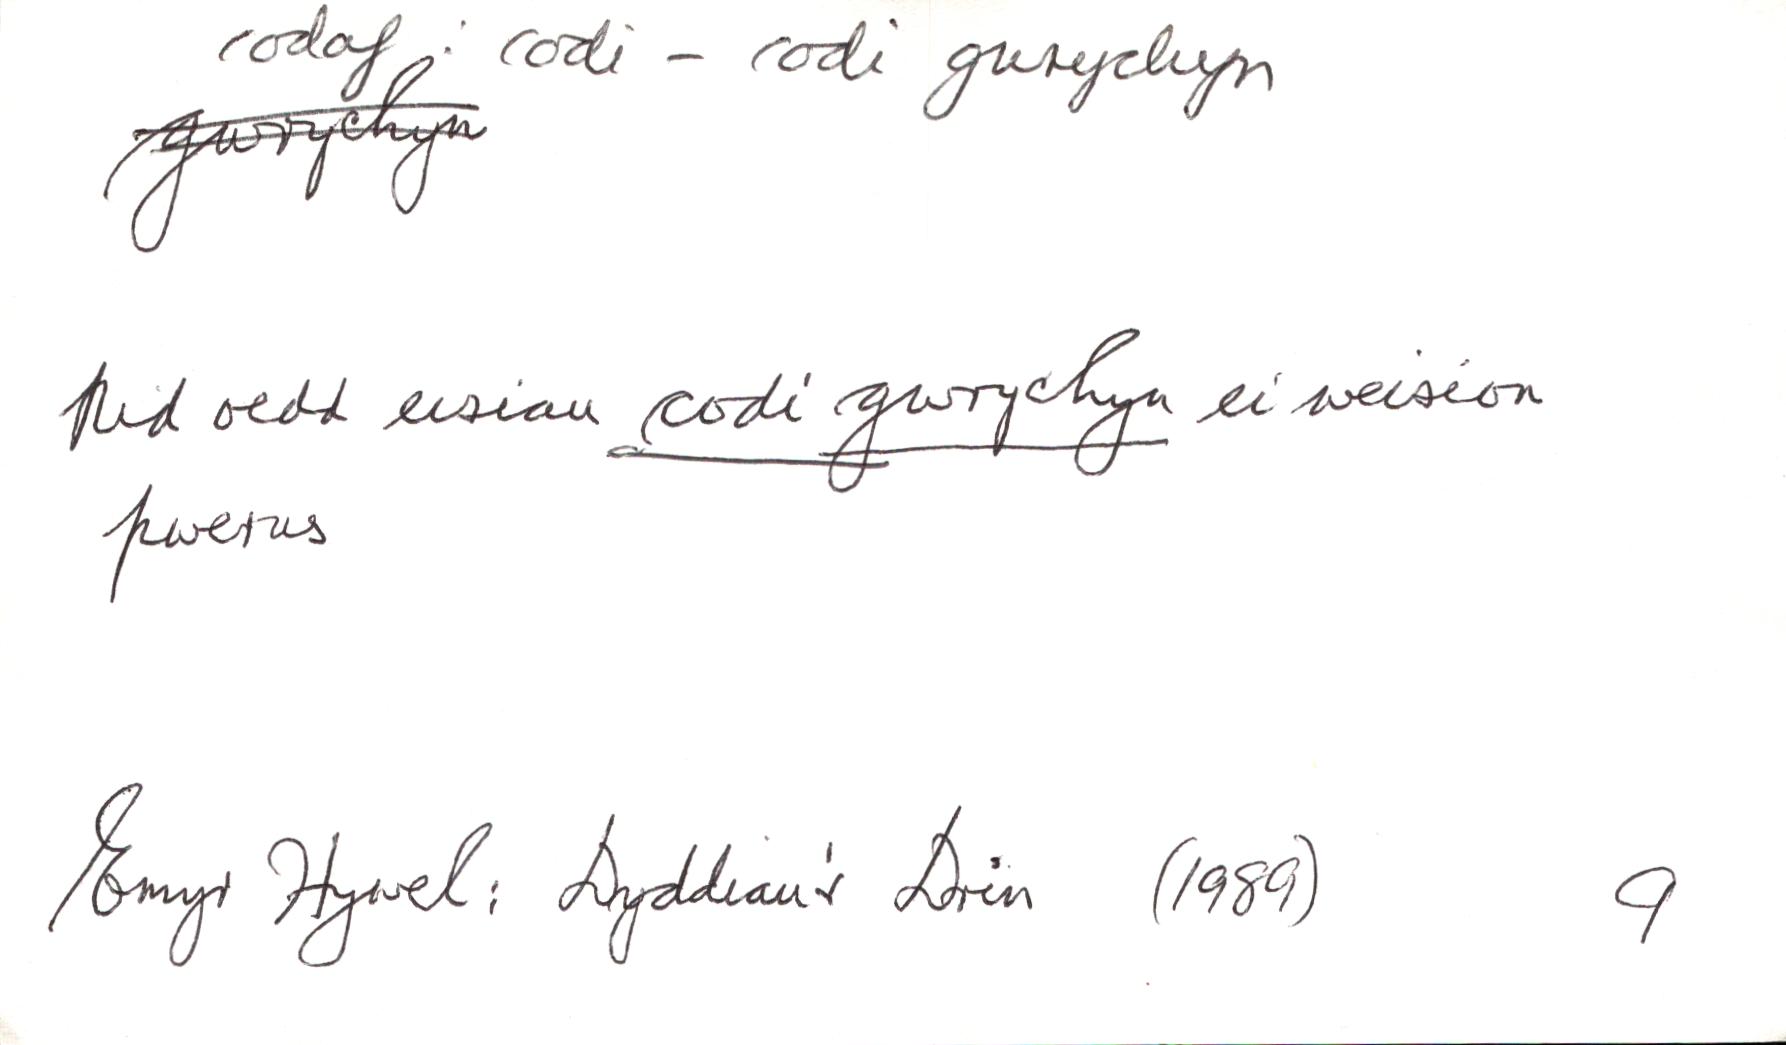 codaf : codi – codi gwrychyn
gwrychyn
Nid oedd eisiau codi gwrychyn ei weision
pwerus
Emyr Hywel: Dyddiau'r Drin (1989) 9